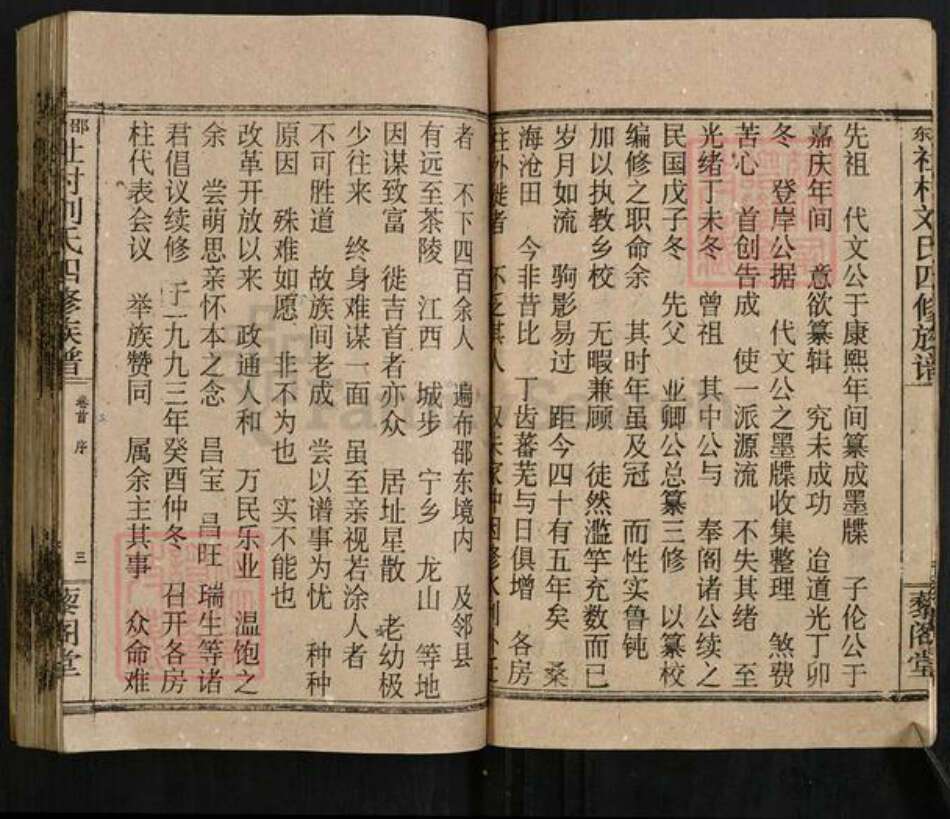 先祖 代文公于康熙年间纂成墨牒 子伦公于
嘉庆年间 意欲纂辑 究未成功 迨道光丁卯
冬 登岸公据 代文公之墨牒收集整理 煞费
苦心 首创告成 使一派源流 不失其绪 至
光绪丁未冬 曾祖 其中公与 奉阁诸公续之
民国戊子冬 先父 亚卿公总纂三修 以纂校
编修之职命余 其时年虽及冠 而性实鲁钝
加以执教乡校 无暇兼顾 徒然滥竽充数而已
岁月如流 驹影易过 距今四十有五年矣 桑
海沧田 今非昔比 丁齿蕃芜与日俱增 各房
往外徙者 不乏其人
者 不下四百余人 遍布邵东境内 及邻县
有远至茶陵 江西 城步 宁乡 龙山 等地
因谋致富 徙吉首者亦众 居址星散 老幼极
少往来 终身难谋一面 虽至亲视若涂人者
不可胜道 故族间老成 尝以谱事为忧 种种
原因 殊难如愿 非不为也 实不能也
改革开放以来 政通人和 万民乐业 温饱之
余 尝萌思亲怀本之念 昌宝 昌旺 瑞生等诸
君倡议续修 于一九九三年癸酉仲冬 召开各房
柱代表会议 举族赞同 属余主其事 众命难
氏四修族谱
卷首 序
三
藜阁堂